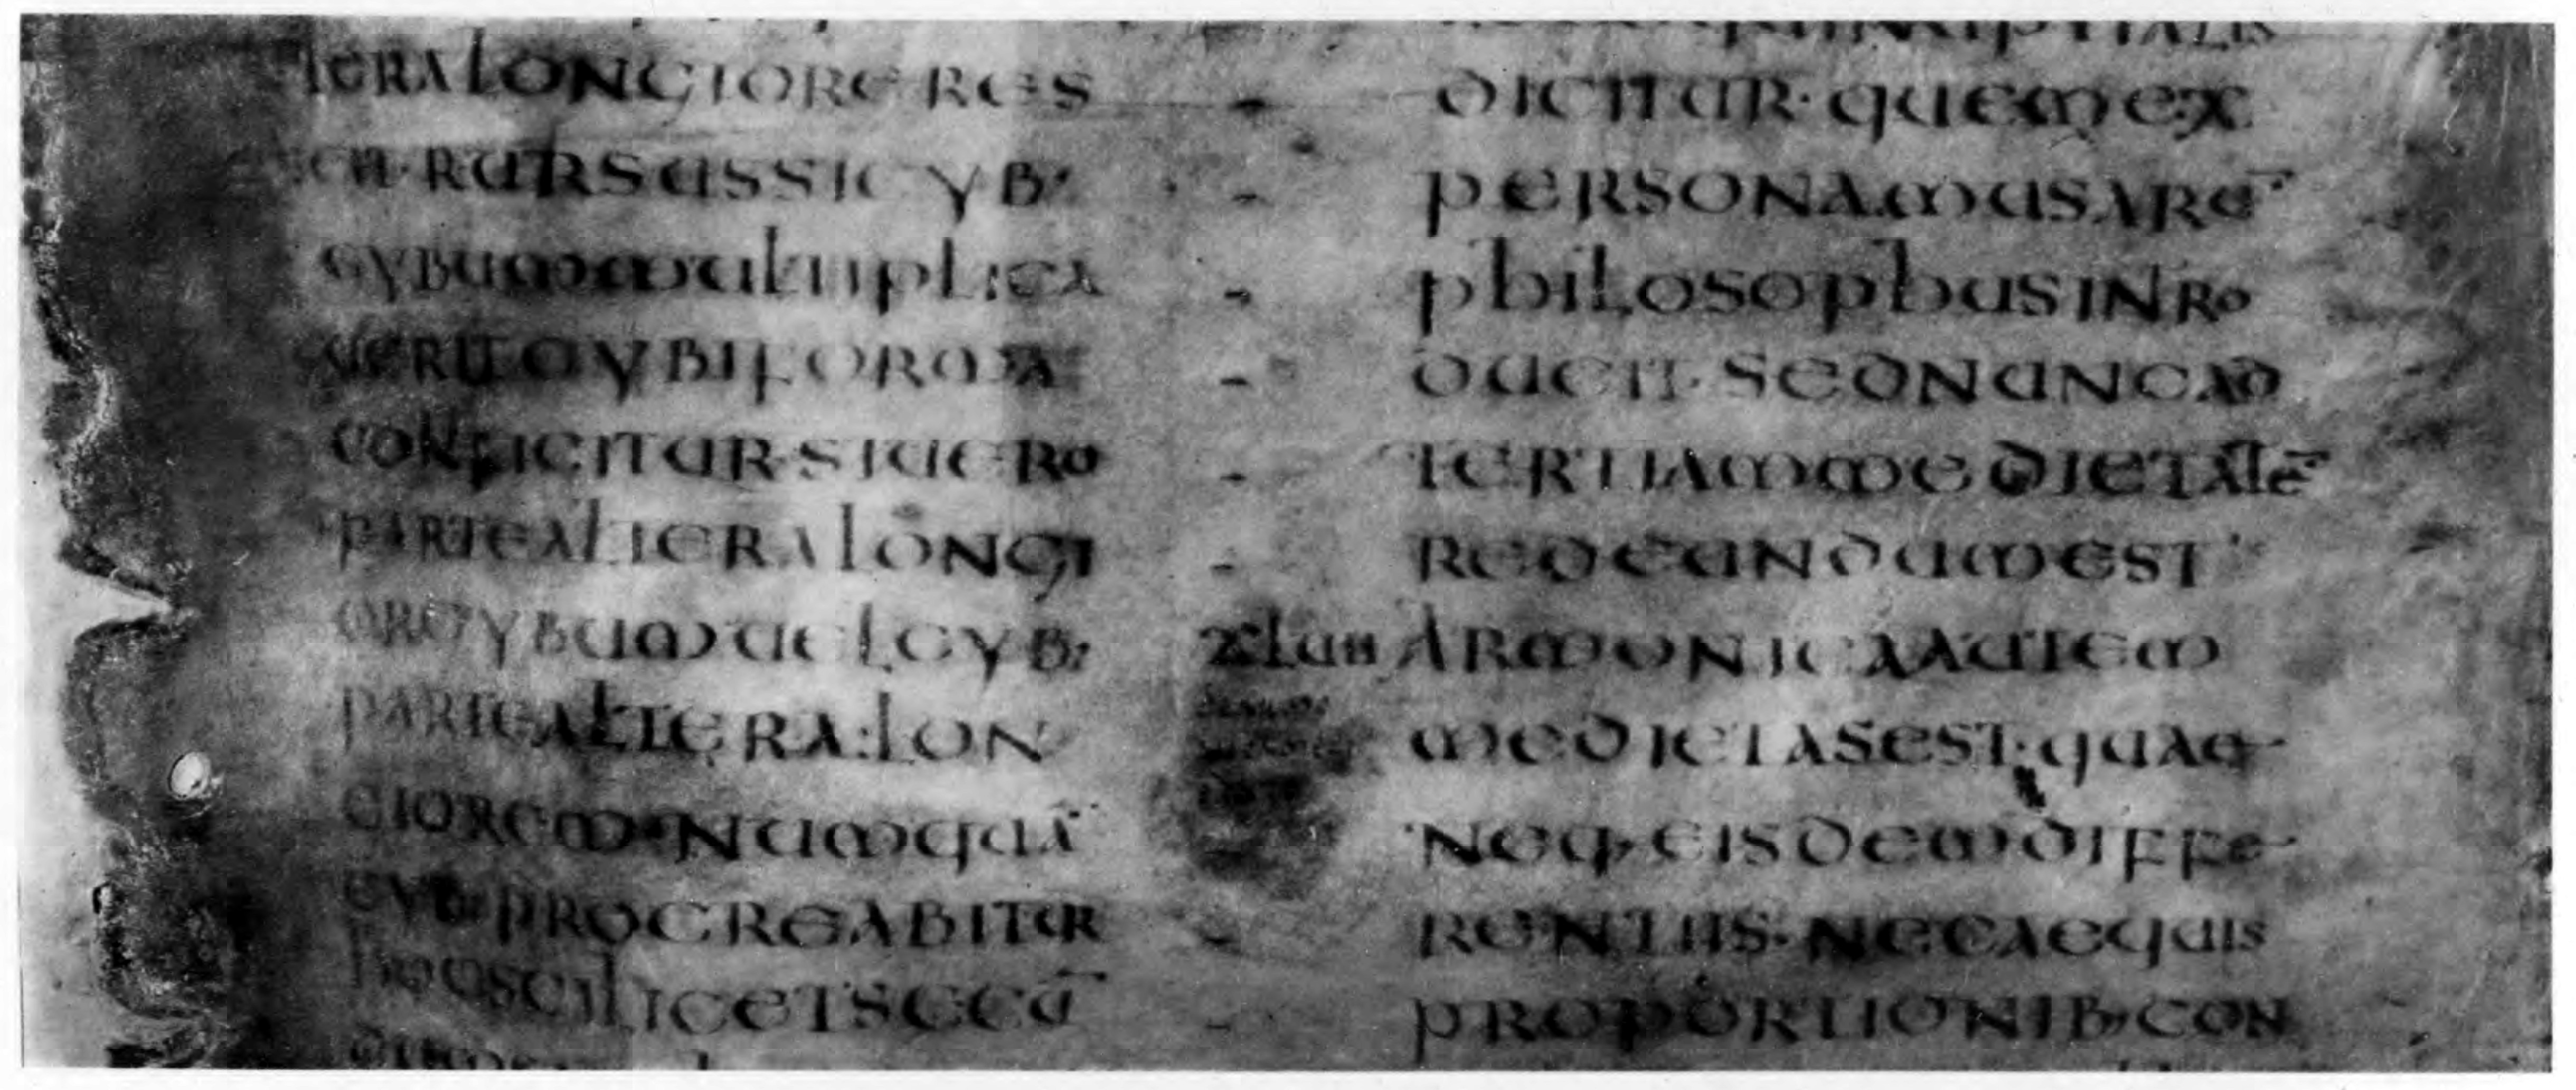 TERALONGIORERES
CIT·RURSUSSICYB·
CYBUMMULTIPLICA
UERITCYBIFORMA
CONFICITUR·SIUERO
PARTEALTERALONGI
ORECYBUMUELCYB·
PARTEALTERALON
GIOREM·NUMQUĀ
CYB·PROCREABITUR
HOCSCILICETSECŪ
DICITUR·QUEMEX
PERSONAMUSARŪ
PHILOSOPHUSINRO
DUCIT·SEDNUNCAD
TERTIAMMEDIETATĒ
REDEUNDUMEST
XLUII ARMONICAAUTEM
MEDIETASEST·QUAE
NEQ·EISDEMDIFFE
RENTIIS·NECAEQUIS
PROPORTIONIB·CON